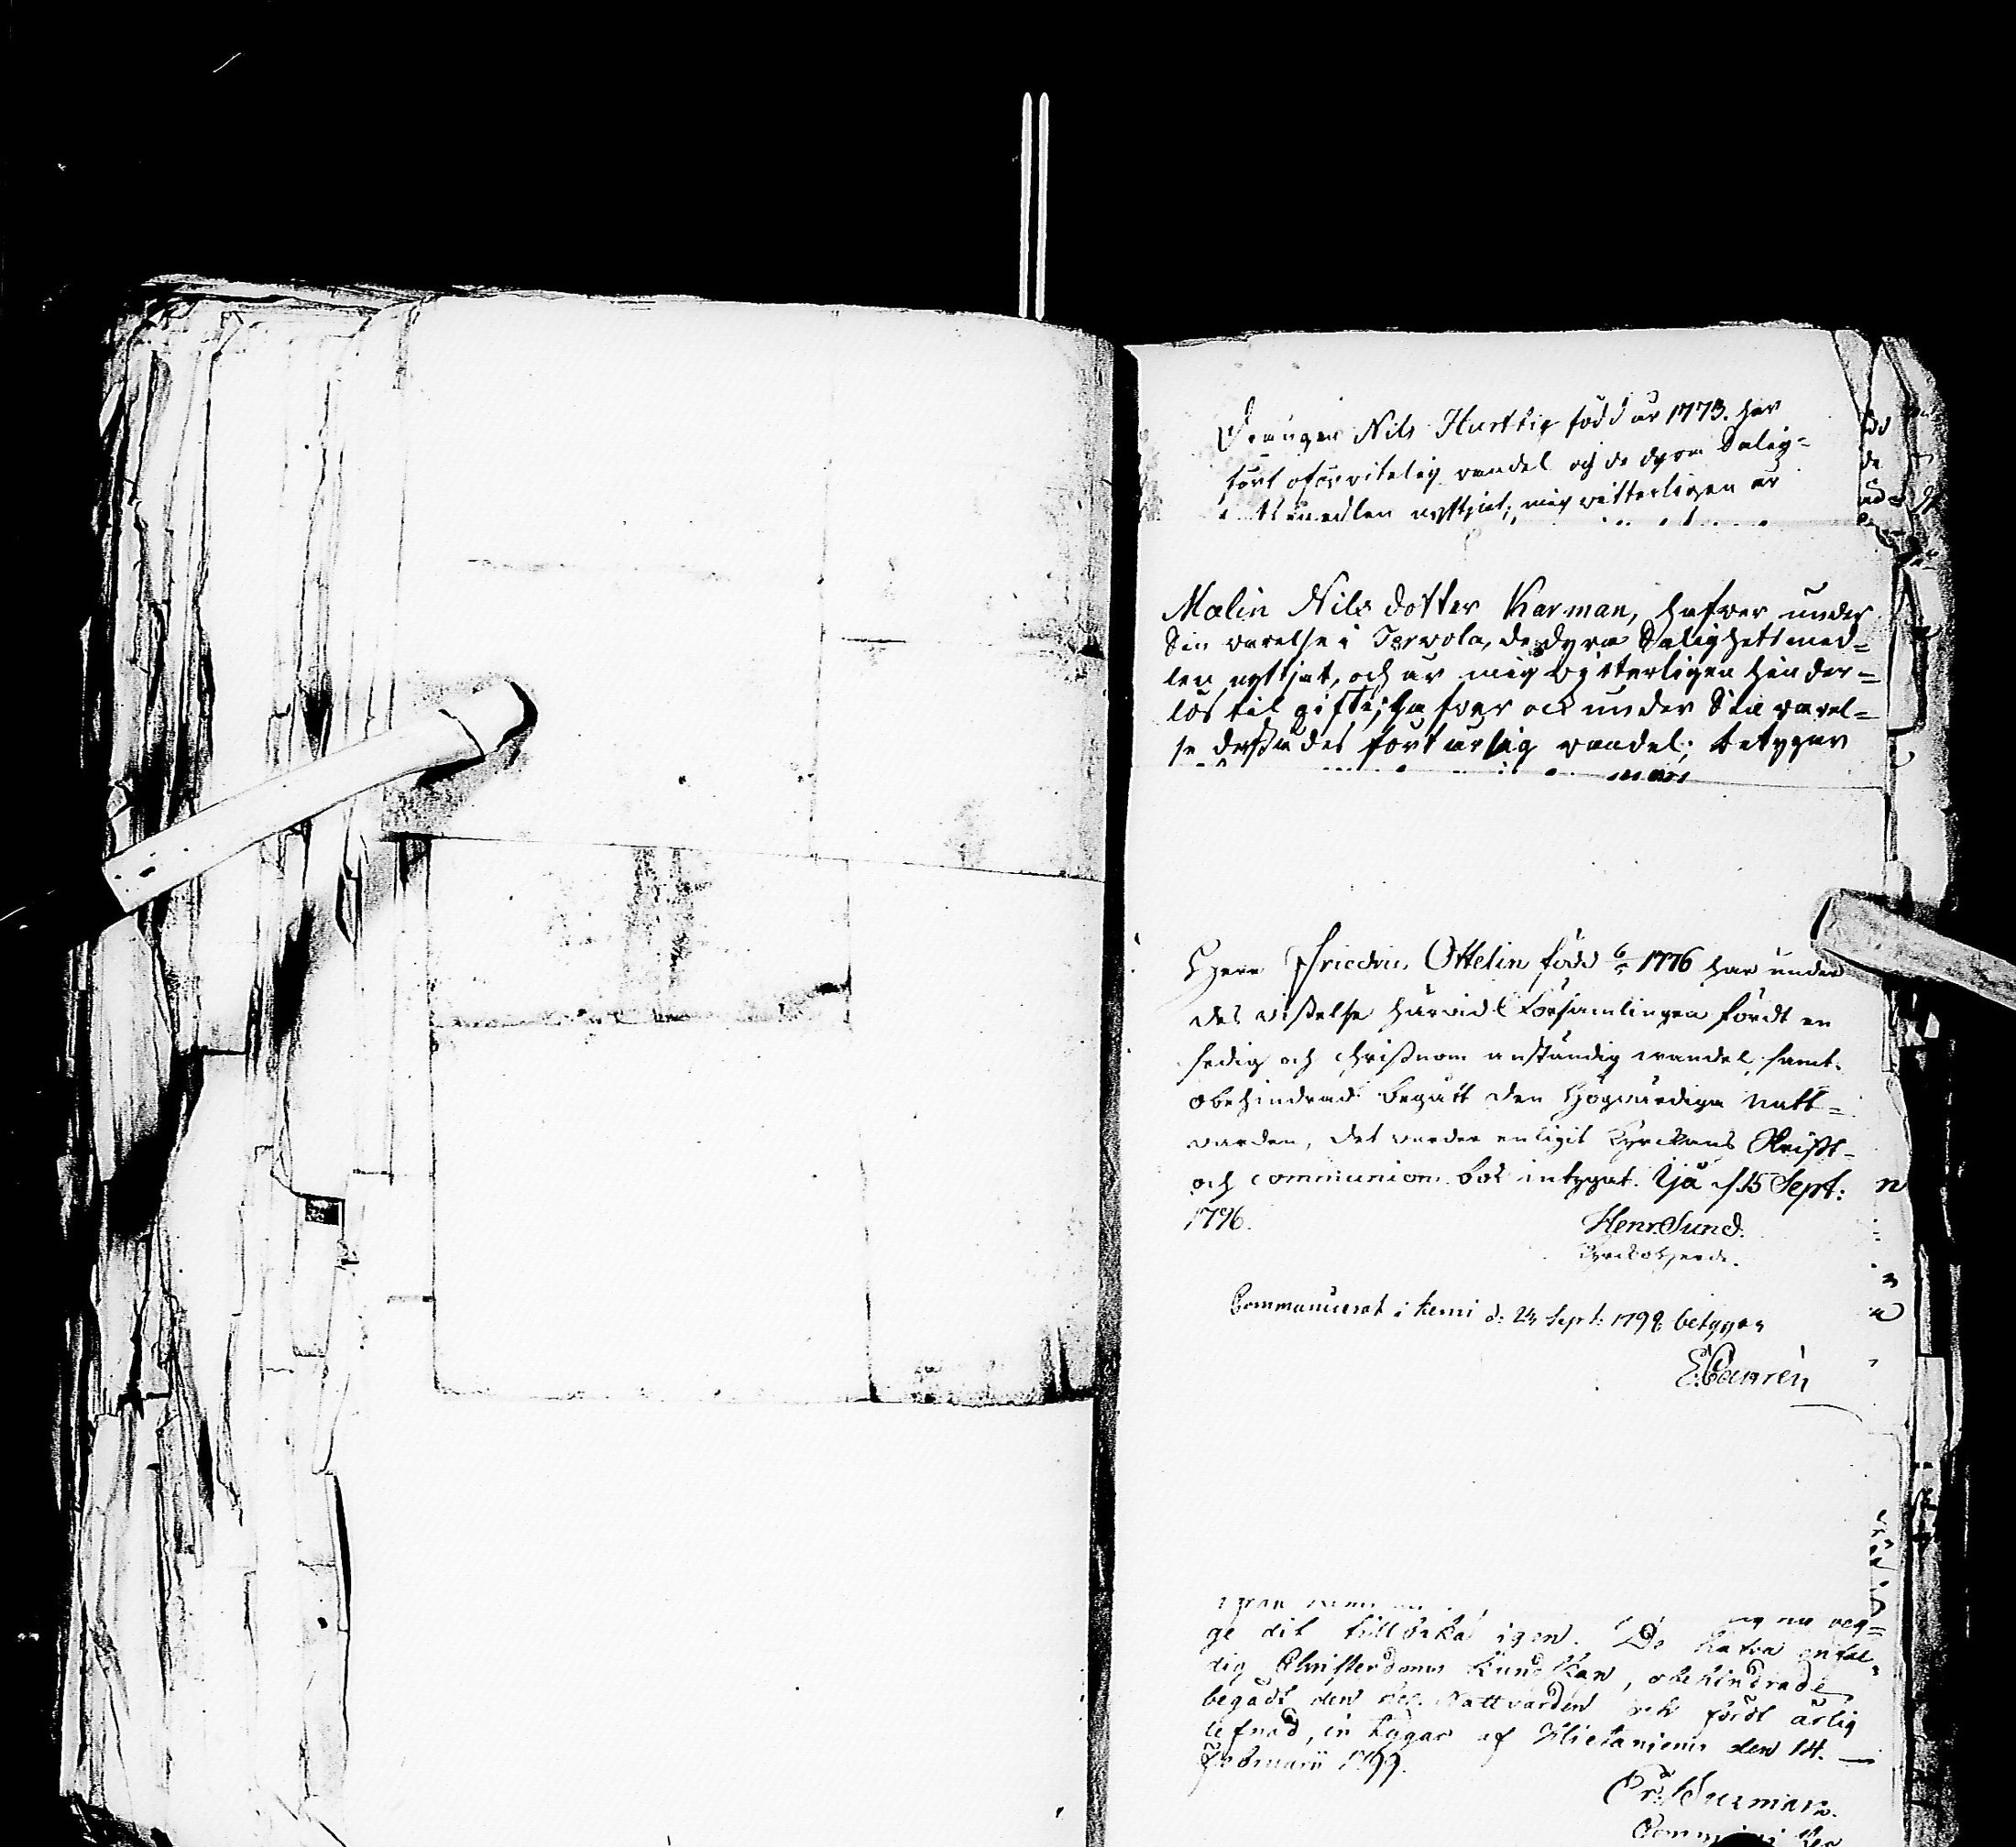 Drängen Nils Hurttig född år 1773. har
fört oförvitelig vandel och de dyra Salig-
medlen nyttjat; mig vitterligen är
Malin Nils dotter Karman, hafver under
Sin varelse i Tervola, de dyra Salighets med=
len nyttjat, och är mig vitterligen hinder=
lös til gifte; hafver ock under Sin varel=
se dessutdes fört ärlig vandel; betygar
Herr Friedric Ottelin född 1776 har under
des vistelse härvid Församlingen fördt en
sedig och christnom anständig vandel, samt
obehindrad begått den Högvärdiga Natt=
varden, det varder enligit Kyrckans Skrift-
och communion bok intygat. Ijå d. 15 Sept:
1796.
Henr. Sund.
Kyrckoherde.
Communicerat i Kemi d. 24 Sept: 1798, betygar
E. Canrén
ge dit tillbaka igen. De hafva
dig Christendoms kundskap, obehindrade
begådt den Nattvarden och fördt ärlig
lefnad, intygar af Hietaniemi den 14.
Februarii 1799.